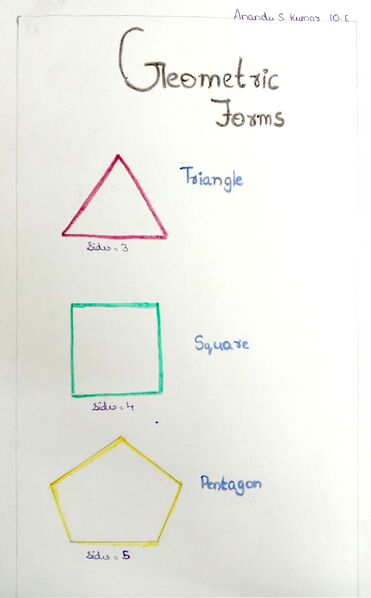 Anandu S Kumar 10-E
Geometric
Forms
Triangle
Sides = 3
Square
Sides = 4
Pentagon
Sides = 5